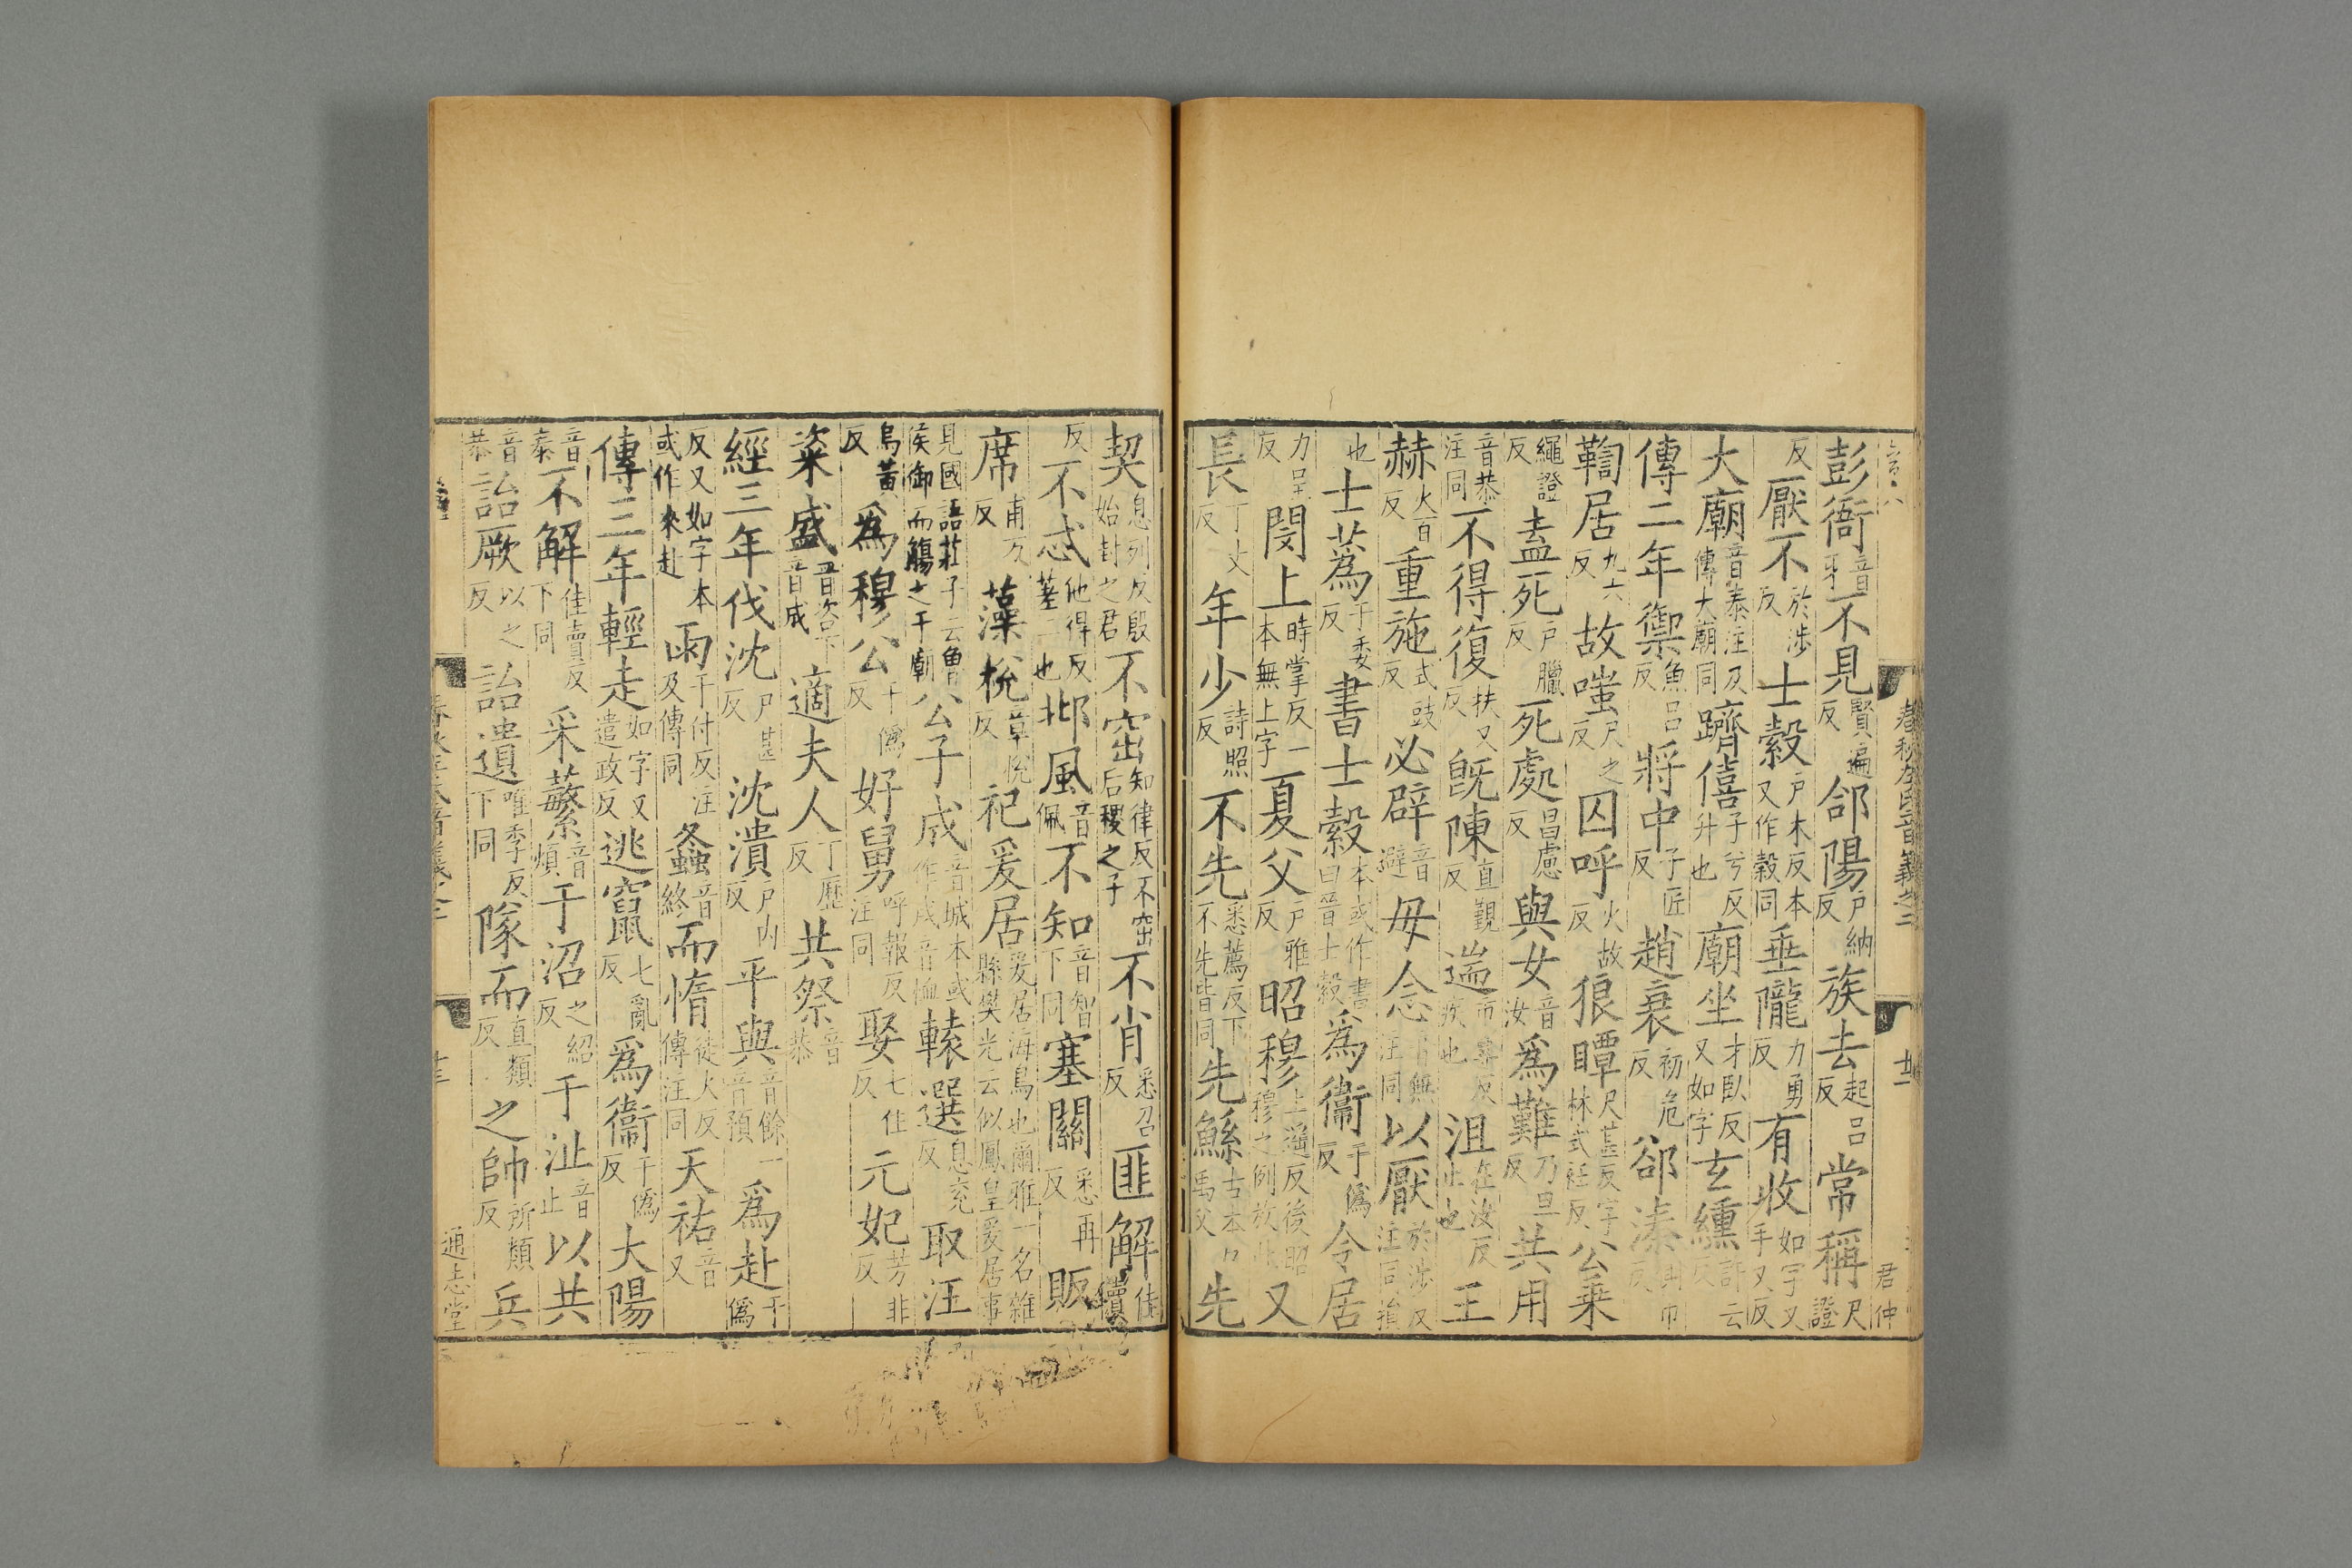 彭衙音牙不見賢遍反郃陽户納反族去起吕反常稱尺證
反厭不於涉反士縠户木反本又作穀同垂隴力勇反有收如字又手又反
大廟音泰注及傳大廟同躋僖子兮反升也廟坐才臥反又如字玄纁許云反
傳二年禦魚吕反將中子匠反趙衰初危反郤溱側巾反
鞫居九六反故嗤尺之反囚呼火故反狼瞫尺甚反字林式衽反公乗
繩證反盍死户臘反死處昌慮反與女音汝爲難乃旦反共用
音恭注同不得復扶又反旣陳直覲反遄市專反疾也沮在汝反止也王
赫火百反重施式豉反必辟音避毋念音無注同以厭於涉反注同損
也士蒍于委反書士縠本或作書曰晉士縠爲衞于僞反令居
力呈反閔上時掌反一本無上字夏父户雅反昭穆上遥反後昭穆之例放此又
長丁丈反年少詩照反不先悉薦反下不先皆同先鯀古本反禹父先
契息列反殷始封之君不窋知律反不窋后稷之子不肖悉召反匪解佳賣
反不忒他得反差也邶風音佩不知音智下同塞關悉再反販
席甫万反藻梲章悅反祀爰居爰居海鳥也爾雅一名雜縣樊光云似鳳皇爰居事
見國語莊子云魯侯御而觴之于廟公子成音城本或作戍音恤轅選息兖反取汪
烏黃反爲穆公于僞反好舅呼報反注同娶七住反元妃芳非反
粢盛音咨下音成適夫人丁歷反共祭音恭
經三年伐沈尸甚反沈潰户内反平與音餘一音預爲赴于僞
反又如字本或作來赴雨于付反注及傳同螽音終而惰徒火反傳注同天祐音又
傳三年輕走如字又遣政反逃竄七亂反爲衞于僞反大陽
音泰不解佳賣反下同采蘩音煩于沼之紹反于沚音止以共
音恭詒厥以之反詒遺唯季反下同隊而直類反之帥所類反兵
春秋左氏音義之二
廿一
君仲
廿三
通志堂